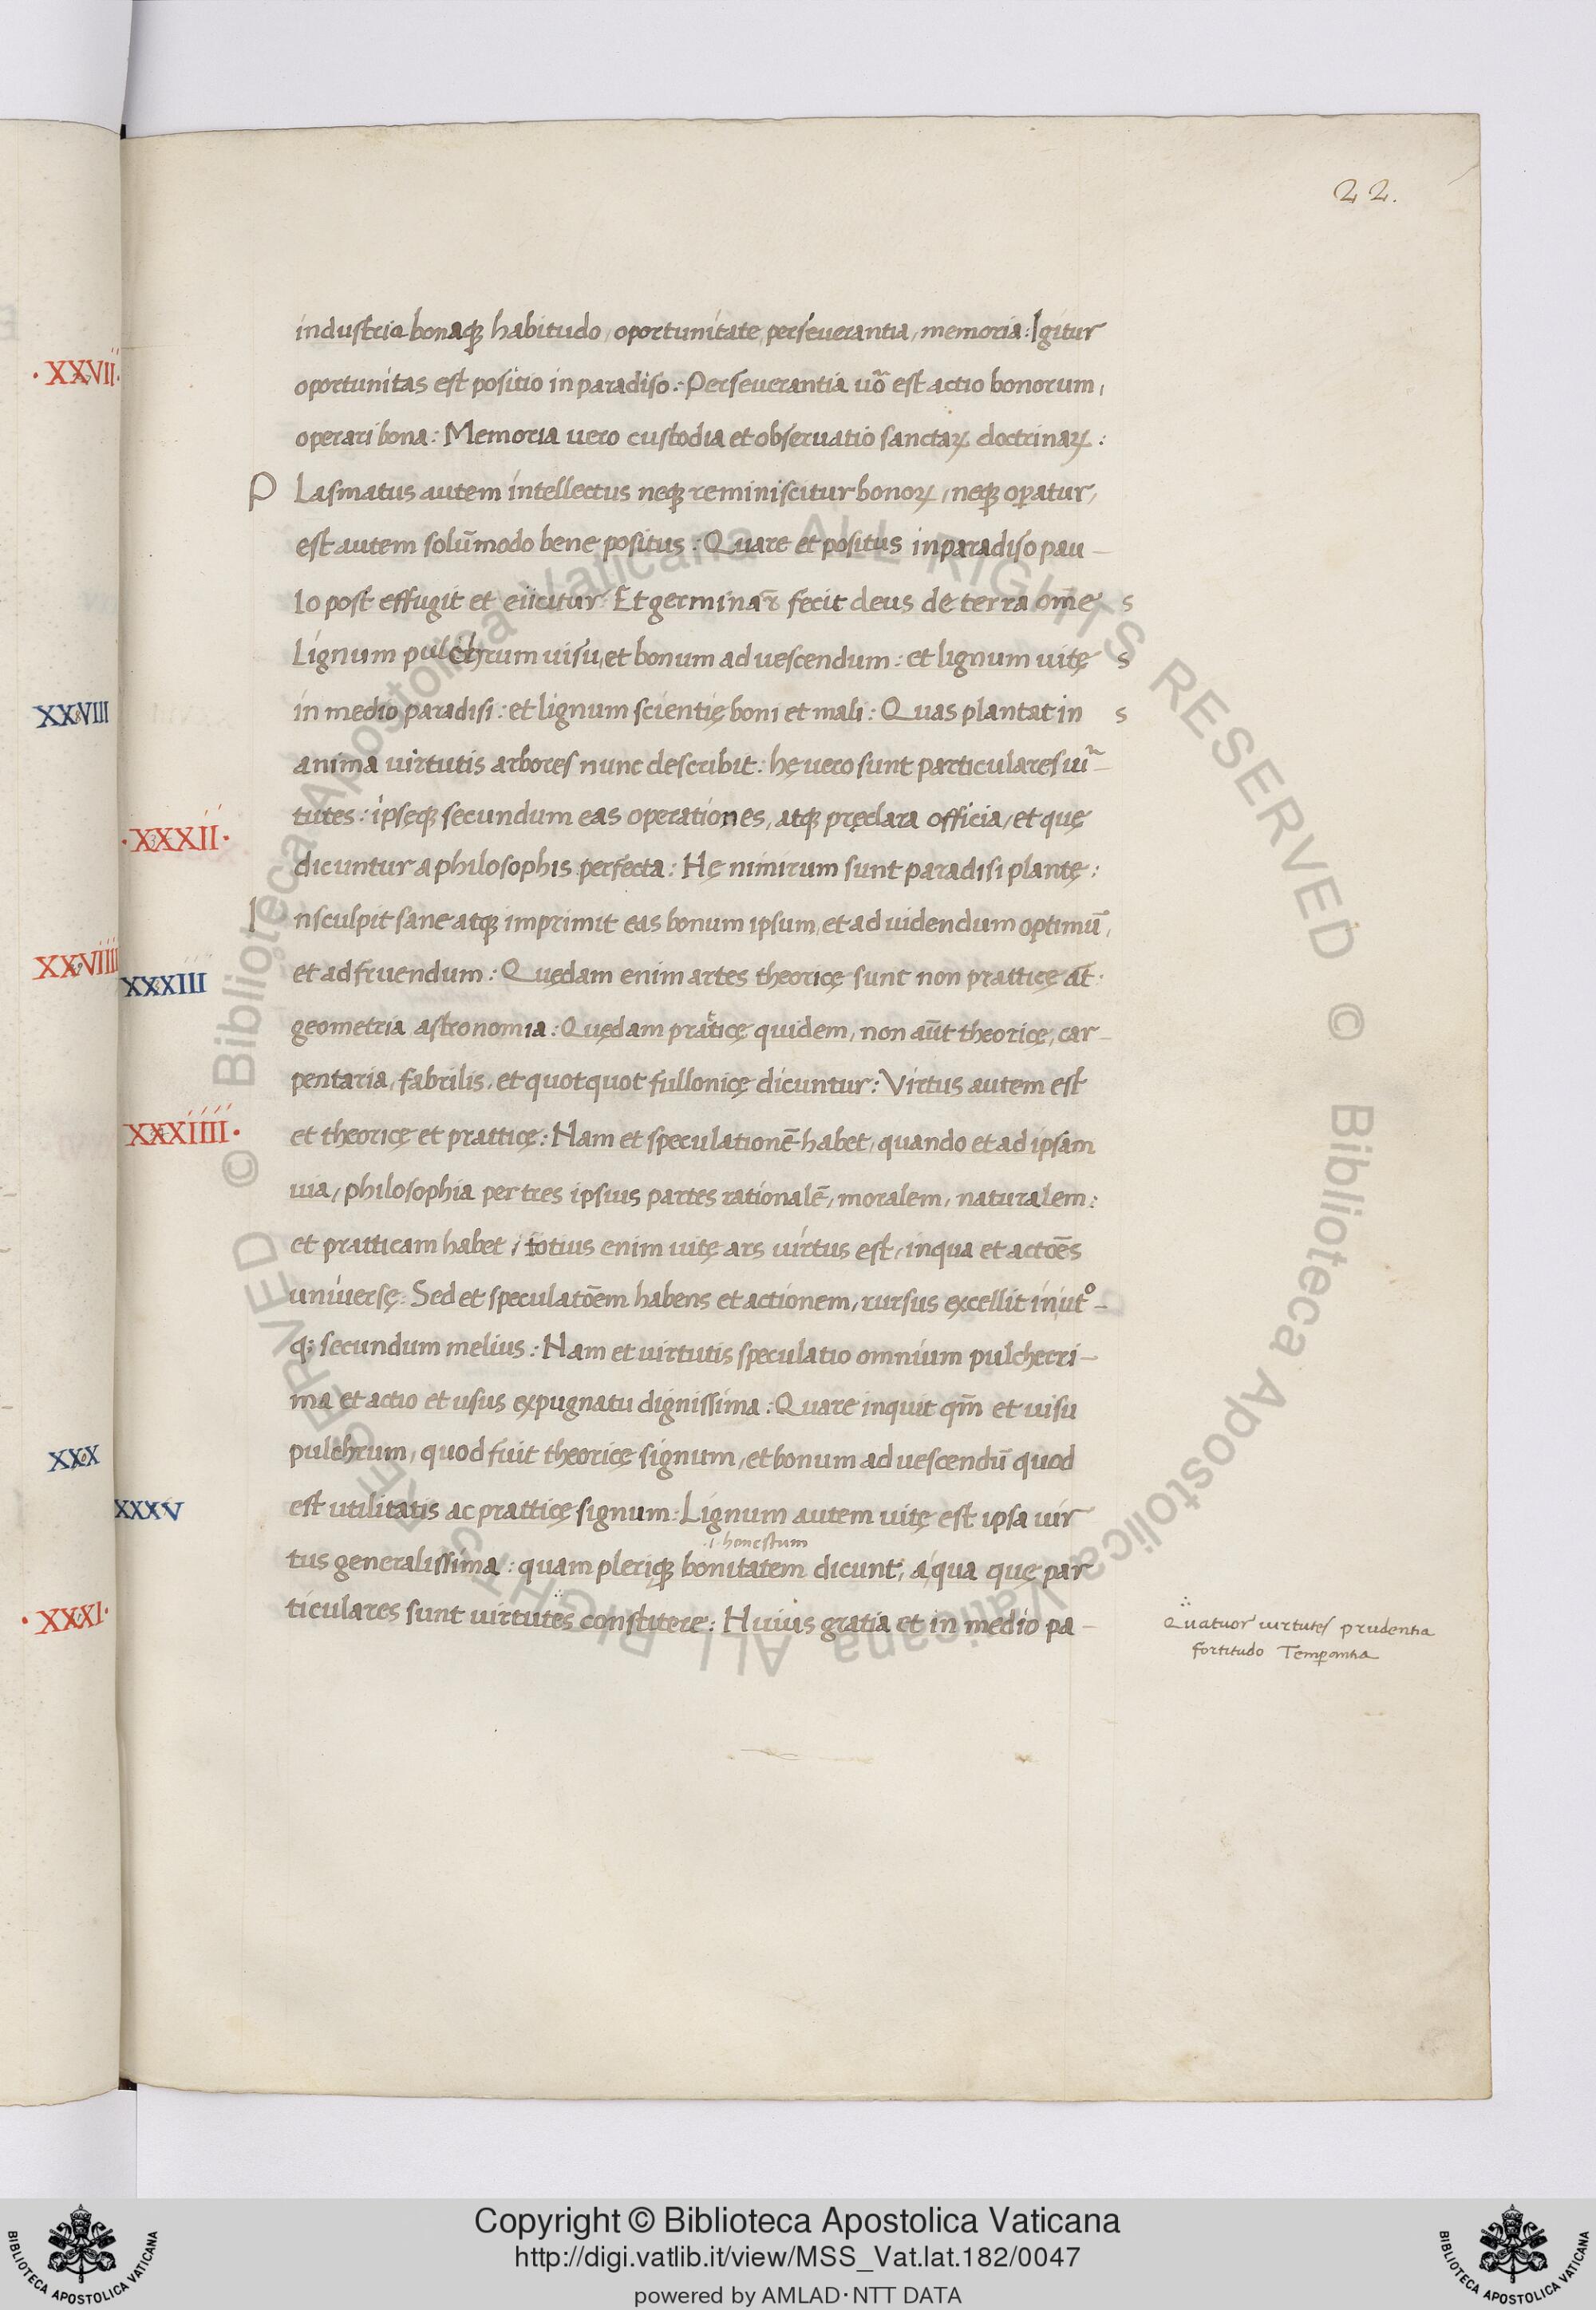 22.
industria bonaqꝫ habitudo, oportunitate, perseuerantia, memoria: Igitur
oportunitas est positio in paradiso: Perseuerantia uō est actio bonorum,
operari bona: Memoria uero custodia et obseruatio sanctaꝝ doctrinaꝝ:
P Lasmatus autem intellectus neqꝫ reminiscitur bonoꝝ, neqꝫ oꝑatur,
est autem solūmodo bene positus: Quare et positus in paradiso pau–
lo post effugit et eiicitur: Et germinar̄ fecit deus de terra om̄e s
Lignum pulchrum uisu, et bonum ad uescendum: et lignum uitę s
in medio paradisi: et lignum scientię boni et mali: Quas plantat in s
anima uirtutis arbores nunc describit: hę uero sunt particulares uir̃–
tutes: ipsęqꝫ secundum eas operationes, atqꝫ pręclara officia, et quę
dicuntur a philosophis perfecta: Hę nimirum sunt paradisi plantę:
I nsculpit sane atqꝫ imprimit eas bonum ipsum, et ad uidendum optimū,
et ad fruendum: Quędam enim artes theoricę sunt non prattice at̄:
geometria astronomia: Quędam pratice quidem, non aūt theoricę, car–
pentaria, fabrilis, et quotquot fullonicę dicuntur: Virtus autem est
et theoricę et prattice: Nam et speculationē habet, quando et ad ipsam
uia, philosophia per tres ipsius partes rationalē, moralem, naturalem:
et pratticam habet, totius enim uitę ars uirtus est, in qua et actōes
uniuersę: Sed et speculatōem habens et actionem, rursus excellit in ut°–
qꝫ secundum melius: Nam et uirtutis speculatio omnium pulcherri–
ma et actio et usus expugnatu dignissima: Quare inquit qm̄ et uisu
pulchrum, quod fuit theoricę signum, et bonum ad uescendū quod
est utilitatis ac prattice signum: Lignum autem uitę est ipsa uir
.i. honestum
tus generalissima: quam pleriqꝫ bonitatem dicunt, a qua quę par
ticulares sunt uirtutes constitere: Huius gratia et in medio pa–
Quatuor uirtutes prudentia
fortitudo Temꝑantia
·XXVII·
XXVIII
·XXXII·
XXVIIII
XXXIII
XXXIIII·
XXX
XXXV
·XXXI·
Copyright © Biblioteca Apostolica Vaticana
http://digi.vatlib.it/view/MSS_Vat.lat.182/0047
powered by AMLAD·NTT DATA
BIBLIOTECA APOSTOLICA VATICANA
BIBLIOTECA APOSTOLICA VATICANA
© Biblioteca Apostolica Vaticana ALL RIGHTS RESERVED
© Biblioteca Apostolica Vaticana ALL RIGHTS RESERVED